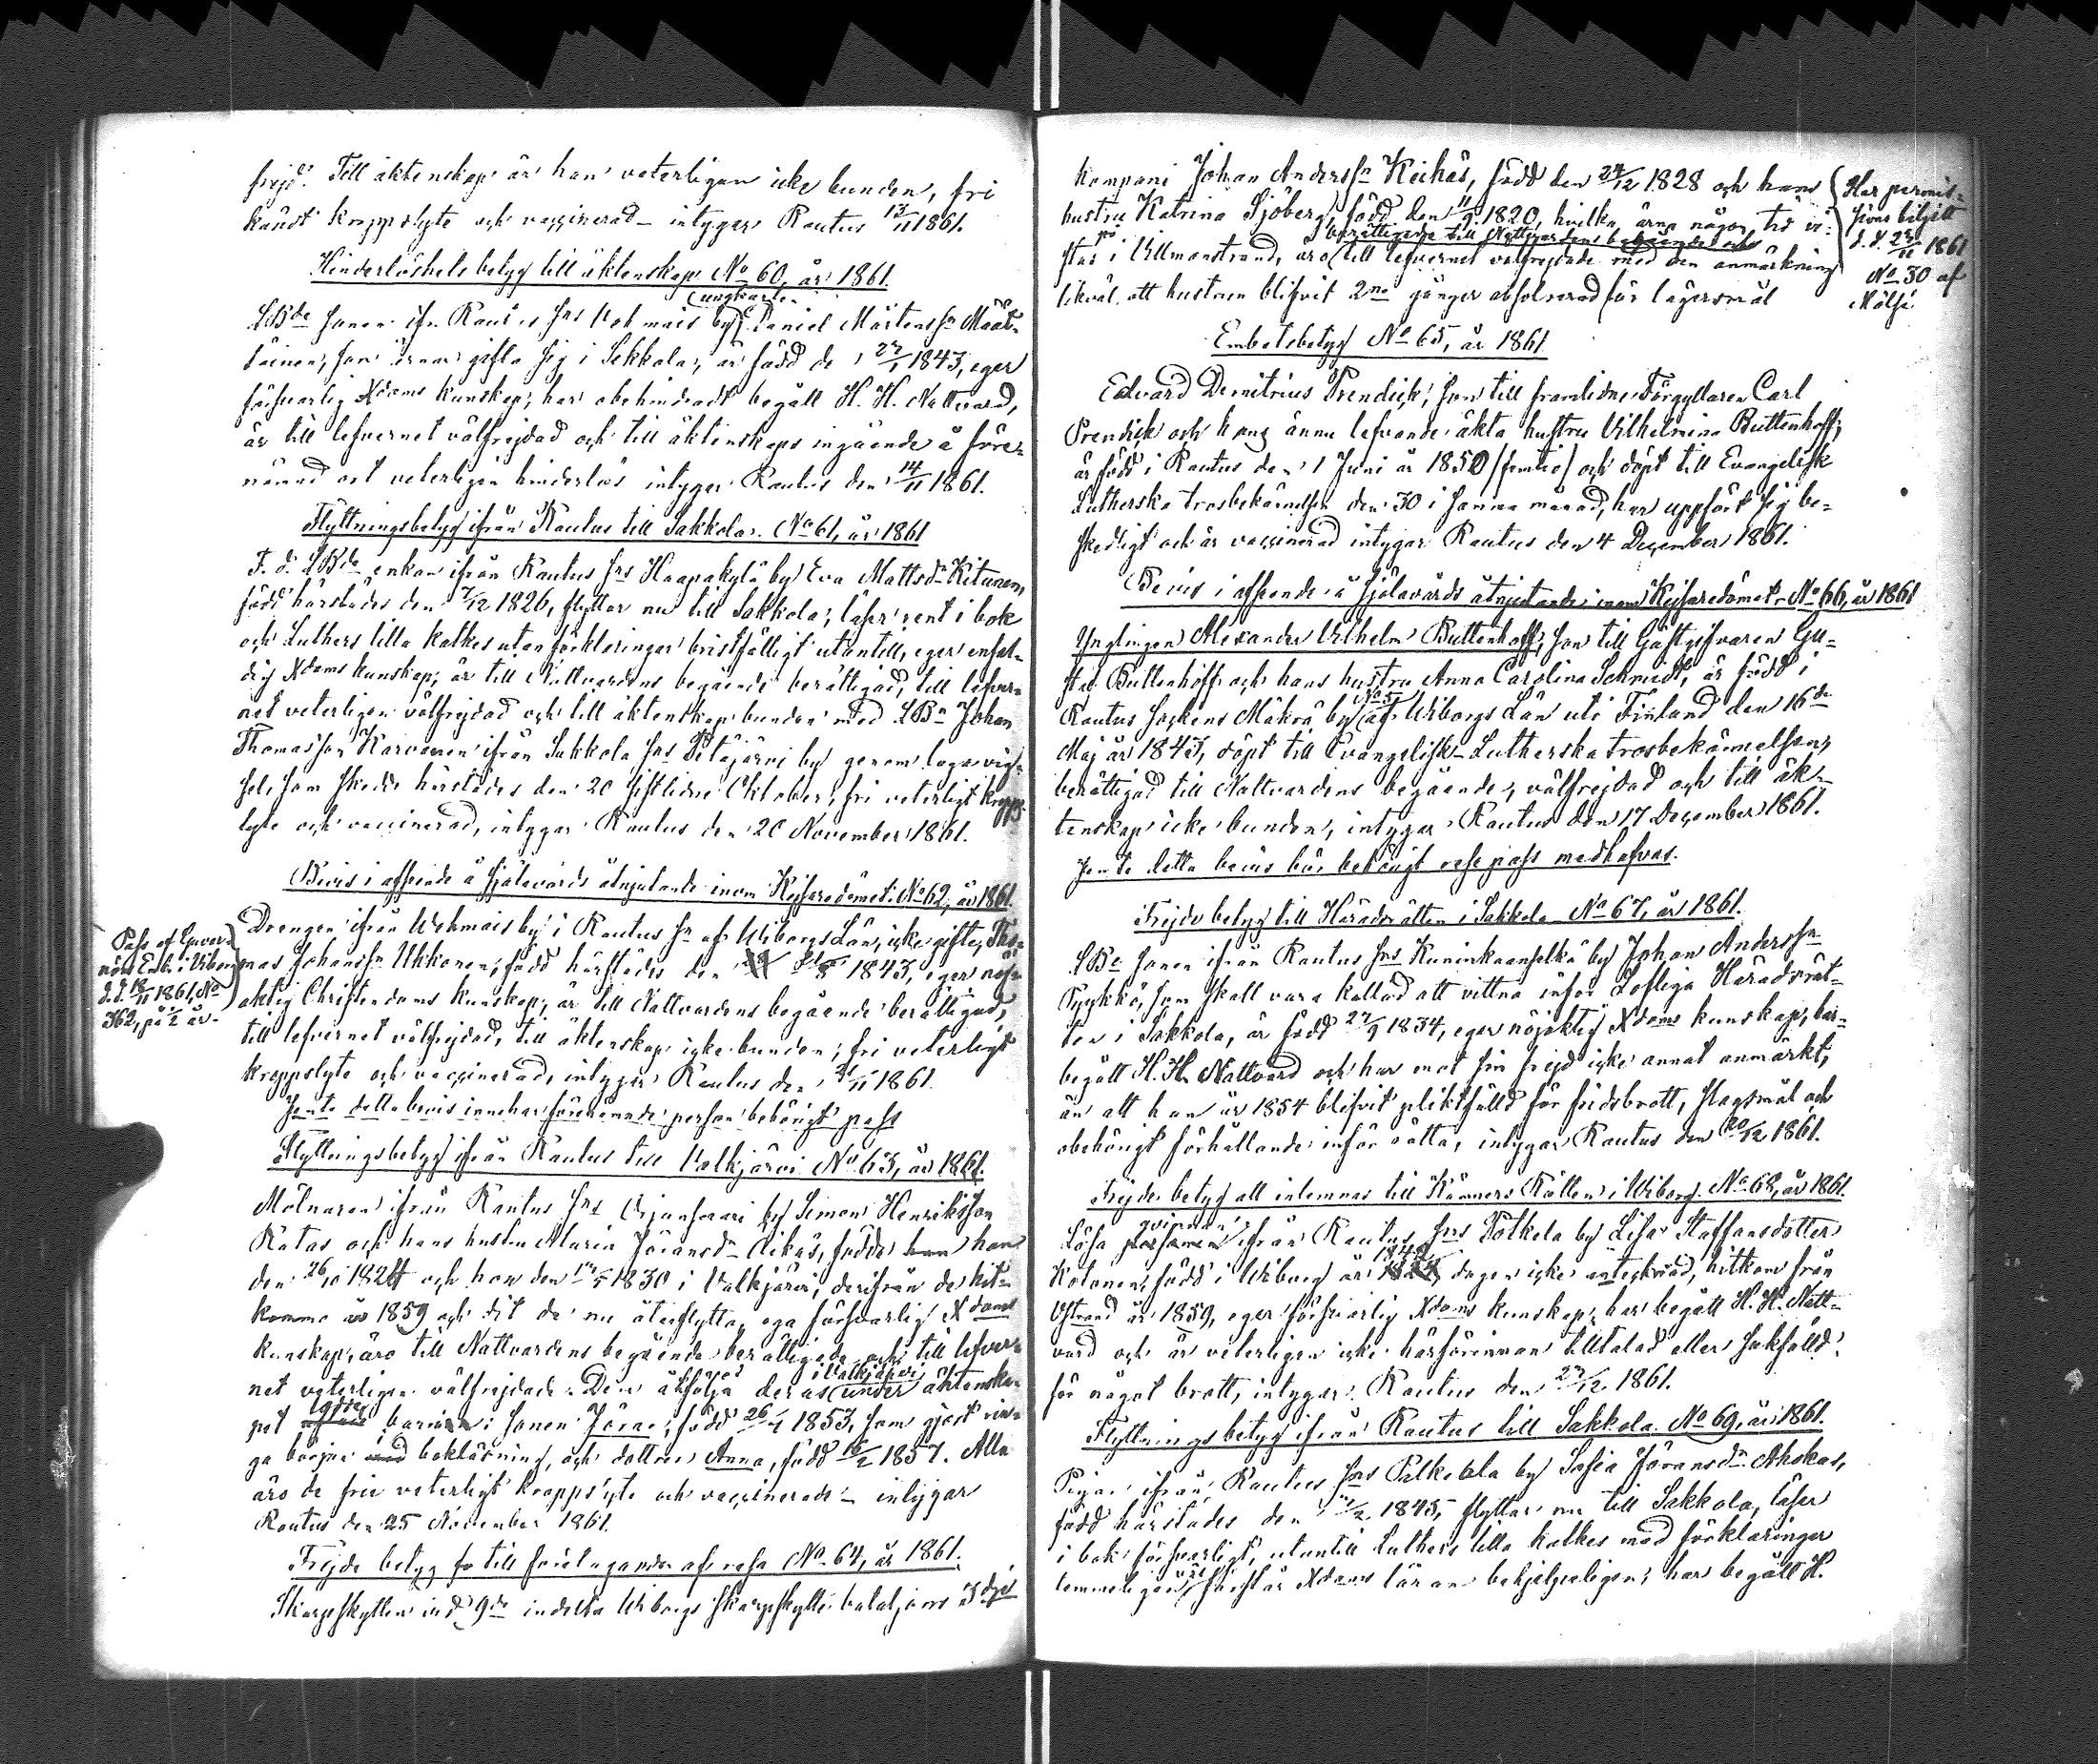 frejd. Till äktenskap är han veterligen icke bunden, fri
kändt kroppslyte och vaccinerad – intygar Rautus 13/11 1861.
Hinderlöshets betyg till äktenskap No 60, år 1861.
(ungkarlen
LBde sonen ifrn Rautus sns Wehmais by, Daniel Mårtenssn Määt-
täinen, som ärnar gifta sig i Sakkola, är född de 27/1 1843, eger
försvarlig Xdoms kunskap, har obehindradt begått H. H. Nattvard,
är till lefvernet välfrejdad och till äktenskaps ingående å före-
nämnd ort veterligen hinderlös intygar Rautus den 14/11 1861.
Flyttningsbetyg ifrån Rautus till Sakkola. No 61, år 1861
F. d. LBde enkan ifrån Rautus sns Haapakylä by Eva Mattsdr Kitunen,
född härstädes den 7/12 1826, flyttar nu till Sakkola; läser rent i bok
och Luthers lilla katkes utan förklaringar bristfälligt utantill, eger enfal-
dig Xdoms kunskap, är till Nattvardens begående berättigad, till lefver-
net veterligen välfrejdad och till äktenskap bunden med LBn Johan
Thomasson Karvonen ifrån Sakkola sns Petäjärvi by genom laga vig-
sel, som skedde härstädes den 20 sistlidne Oktober, fri veterligt kropps
lyte och vaccinerad, intygar Rautus den 20 November 1861.
Bevis i afseende å själavårds åtnjutande inom Kejsaredömet. No 62, år 1861.
Pass af Guver-
nörs Emb. i Viborg
d.d. 18/11 1861, No
362, på 1/2 år.
Drengen ifrån Wehmais by i Rautus sn af Wiborgs Län, icke gifte, Tho-
mas Johanssn Ukkonen, född härstädes den 21/8 1843, eger nöj-
aktig Christendoms kunskap, är till Nattvardens begående berättigad,
till lefvernet välfrejdad, till äktenskap icke bunden; fri veterligt
kroppslyte och vaccinerad, intygar Rautus den 21/11 1861.
Jemte detta bevis innehar förenämnde person behörigt pass
Flyttningsbetyg ifrån Rautus till Valkjärvi No 63, år 1861.
Mölnaren ifrån Rautus sns Orjansaari by Simon Henriksson
Ratas och hans hustru Maria Jöransdr Aikäs, födde han
den 26/10 1824 och hon den 17/5 1830 i Valkjärvi, derifrån de hit-
komma år 1859 och dit de nu återflytta, ega försvarlig Xdoms
kunskap, äro till Nattvardens begående berättigade och till lefver-
net veterligen välfrejdade. Dem åtfölja deras under äktenska-
i Valkjärvi
pet barn: sonen Jöran, född 26/4 1853, som gjort rin-
ga början med boklärning, och dottren Anna, född 16/2 1857. Alla
äro de frie veterligt kroppslyte och vaccinerade – intygar
Rautus den 25 November 1861.
Frejde betyg för till företagande af resa No 64, år 1861.
Skarpskytten vid 9de indelta Wiborgs Skarpskytte bataljons 3dje
kompani Johan Anderssn Keihäs, född den 24/12 1828 och hans
hustru Katrina Sjöberg, född den 11/9 1820, hvilka ärna någon tid vi-
berättigade till Nattvardens begående och
stas i Villmanstrand, äro till lefvernet välfrejdade med den anmärkning
likväl, att hustrun blifvit 2ne gånger absolverad för lägersmål
Har permis-
sions biljett
d. d. 23/11 1861
No 30 af
Mölsi.
Embetsbetyg No 65, år 1861.
Edvard Demitrius Prendick, son till framlidne Förgyllaren Carl
Prendick och hans ännu lefvande äkta hustru Vilhelmina Buttenhoff,
är född i Rautus den 1 Juni år 1850 (femtio) och döpt till Evangelisk
Lutherska trosbekännelsen den 30 i samma månad, har uppfört sig be-
skedligt och är vaccinerad intygar Rautus den 4 December 1861.
Bevis i afseende å själavårds åtnjutande inom Kejsaredömet. No 66, år 1861
Ynglingen Alexander Vilhelm Buttenhoff, son till Gästgifvaren Gu-
staf Buttenhoff och hans hustru Anna Carolina Schmidt, är född i
No 5
Rautus Sockens Mäkrä by af Wiborgs Län uti Finland den 16de
Maj år 1843, döpt till Evangelisk-Lutherska trosbekännelsen,
berättigad till Nattvardens begående, välfrejdad och till äk-
tenskap icke bunden, intygar Rautus den 17 December 1861.
Jemte detta bevis bör behörigt respass medhafvas.
Frejde betyg till Häradsrätten i Sakkola No 67, år 1861.
LBe sonen ifrån Rautus sns Kuninkaanselkä by Johan Anderssn
Pyykkö, som skall vara kallad att vittna inför Lofliga Häradsrät-
ten i Sakkola, är född 27/9 1834, eger nöjaktig Xdoms kunskap, har
begått H. H. Nattvard och har emot sin frejd icke annat anmärkt,
än att han år 1854 blifvit pliktfälld för fridsbrott, slagsmål och
obehörigt förhållande inför rätta, intygar Rautus den 20/12 1861.
Frejde betyg att inlemnas till Kämners Rätten i Wiborg. No 68, år 1861.
qvinnan
Lösa ifrån Rautus sns Potkela by Lisa Staffansdotter
1842
Kotonen, född i Wiborg år dagen icke antecknad, hitkom från
år 1859, eger försvarlig Xdoms kunskap, har begått H. H. Natt-
vard och är veterligen icke härförinnan tilltalad eller sakfälld
för något brott, intygar Rautus den 27/12 1861.
Flyttningsbetyg ifrån Rautus till Sakkola. No 69, år 1861.
Pigan ifrån Rautus sns Palkeala by Sofia Jöransdr Ahokas,
född härstädes den 1845, flyttar nu till Sakkola, läser
i bok försvarligt, utantill Luthers lilla katkes med förklaringar
temmeligen, förstår Xdoms läran behjelpeligen; har begått H.